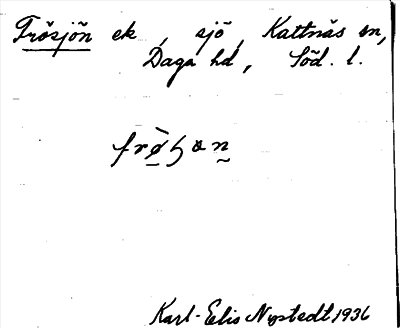 Frösjön ek, sjö, Kattnäs sn,
Daga hd, Söd. l.
Karl-Elis Nystedt 1936